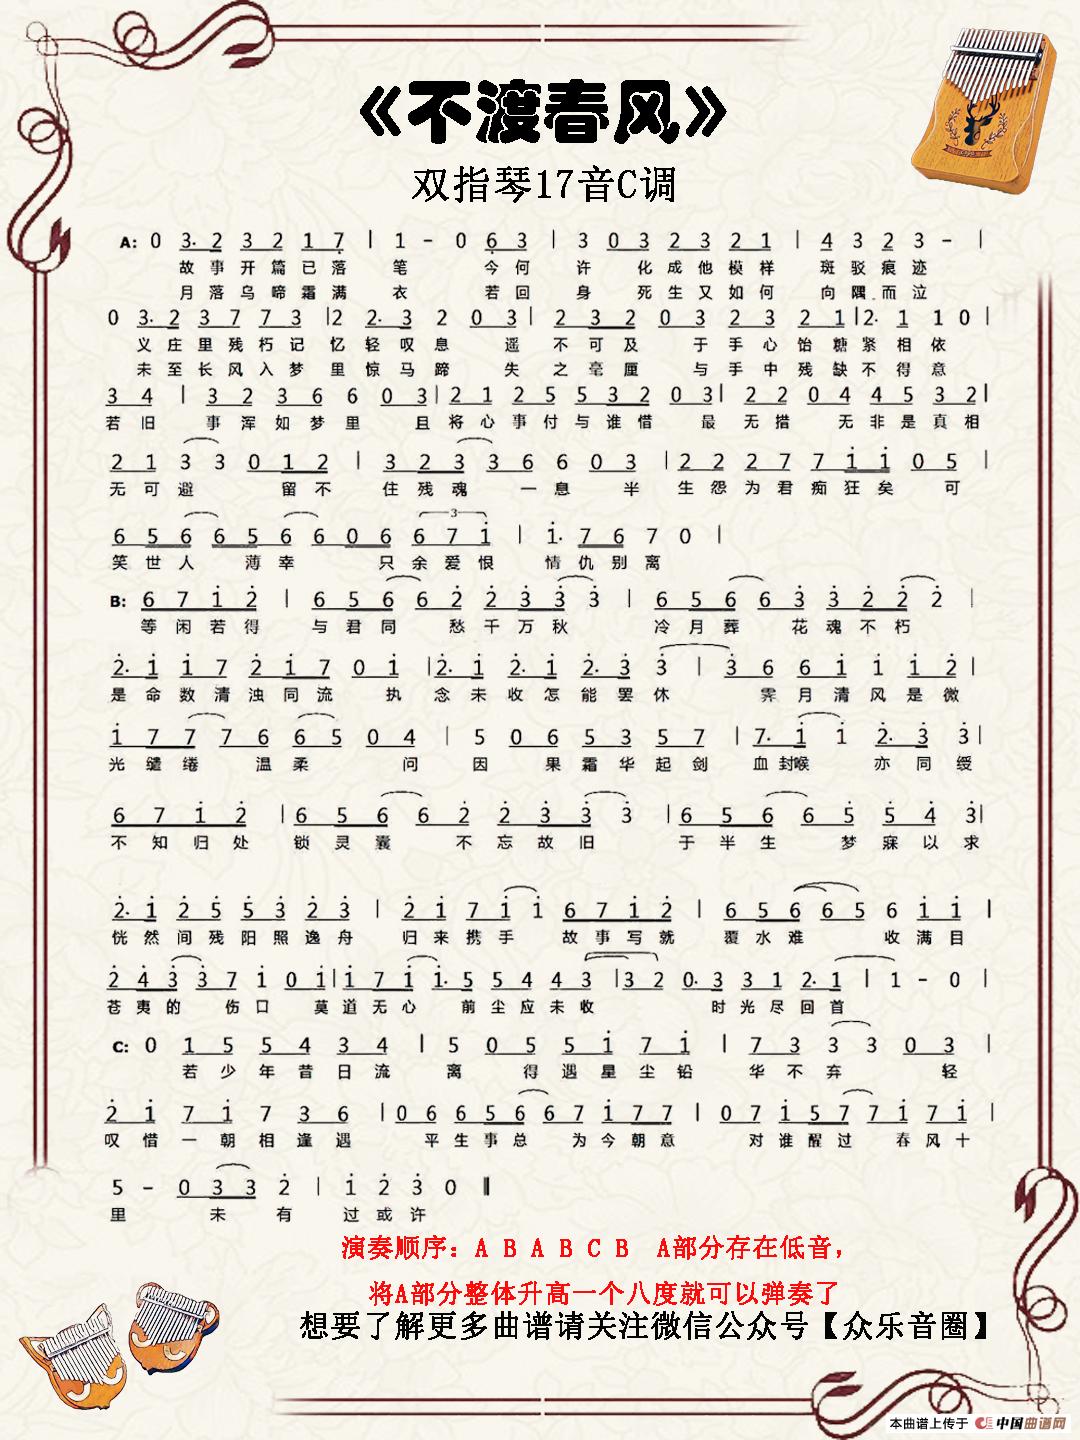 《不渡春风》
双指琴17音C调
A: 0 3. 2 3 2 1 7 | 1 - 0 6 3 | 3 0 3 2 3 2 1 | 4 3 2 3 - |
故事开篇已落 笔 今何 许 化成他模样 斑驳痕迹
月落乌啼霜满 衣 若回 身 死生又如何 向隅.而泣
0 3. 2 3 7 7 3 | 2 2. 3 2 0 3 | 2 3 2 0 3 2 3 2 1 | 2. 1 1 0 |
义庄里残朽记 忆轻叹息 遥 不可及 于手心饴糖紧相依
未至长风入梦 里惊马蹄 失 之毫厘 与手中残缺不得意
3 4 | 3 2 3 6 6 0 3 | 2 1 2 5 5 3 2 0 3 | 2 2 0 4 4 5 3 2 |
若旧 事浑如梦里 且将心事付与谁惜 最 无措 无非是真相
2 1 3 3 0 1 2 | 3 2 3 3 6 6 0 3 | 2 2 2 7 7 1 1 0 5 |
无可避 留不 住残魂 一息 半 生怨为君痴狂矣 可
6 5 6 6 5 6 6 0 6 6 7 1 | 1. 7 6 7 0 |
3
笑世人 薄幸 只余爱恨 情仇别离
B: 6 7 1 2 | 6 5 6 6 2 2 3 3 3 | 6 5 6 6 3 3 2 2 2 |
等闲若得 与君同 愁千万秋 冷月葬 花魂不朽
2. 1 1 7 2 1 7 0 1 | 2. 1 2. 1 2. 3 3 | 3 6 6 1 1 1 2 |
是命数清浊同流 执 念未收怎能罢休 霁月清风是微
1 7 7 7 6 6 5 0 4 | 5 0 6 5 3 5 7 | 7. 1 1 2. 3 3 |
光缱绻 温柔 问 因 果霜华起剑 血封喉 亦同绶
6 7 1 2 | 6 5 6 6 2 2 3 3 3 | 6 5 6 6 5 5 4 3 |
不知归处 锁灵囊 不忘故旧 于半生 梦寐以求
2. 1 2 5 5 3 2 3 | 2 1 7 1 1 6 7 1 2 | 6 5 6 6 5 6 1 1 |
恍然间残阳照逸舟 归来携手 故事写就 覆水难 收满目
2 4 3 3 7 1 0 1 | 1 7 1 1. 5 5 4 4 3 | 3 2 0. 3 3 1 2. 1 | 1 - 0 |
苍夷的 伤口 莫道无心 前尘应未收 时光尽回首
C: 0 1 5 5 4 3 4 | 5 0 5 5 1 7 1 | 7 3 3 3 0 3 |
若少年昔日流 离 得遇星尘铅 华不弃 轻
2 1 7 1 7 3 6 | 0 6 6 5 6 6 7 1 7 7 | 0 7 1 5 7 7 1 7 1 |
叹惜一朝相逢遇 平生事总 为今朝意 对谁醒过 春风十
5 - 0 3 3 2 | 1 2 3 0 ‖
里 未 有 过或许
演奏顺序：A B A B C B A部分存在低音，
将A部分整体升高一个八度就可以弹奏了
想要了解更多曲谱请关注微信公众号【众乐音圈】
本曲谱上传于 中国曲谱网